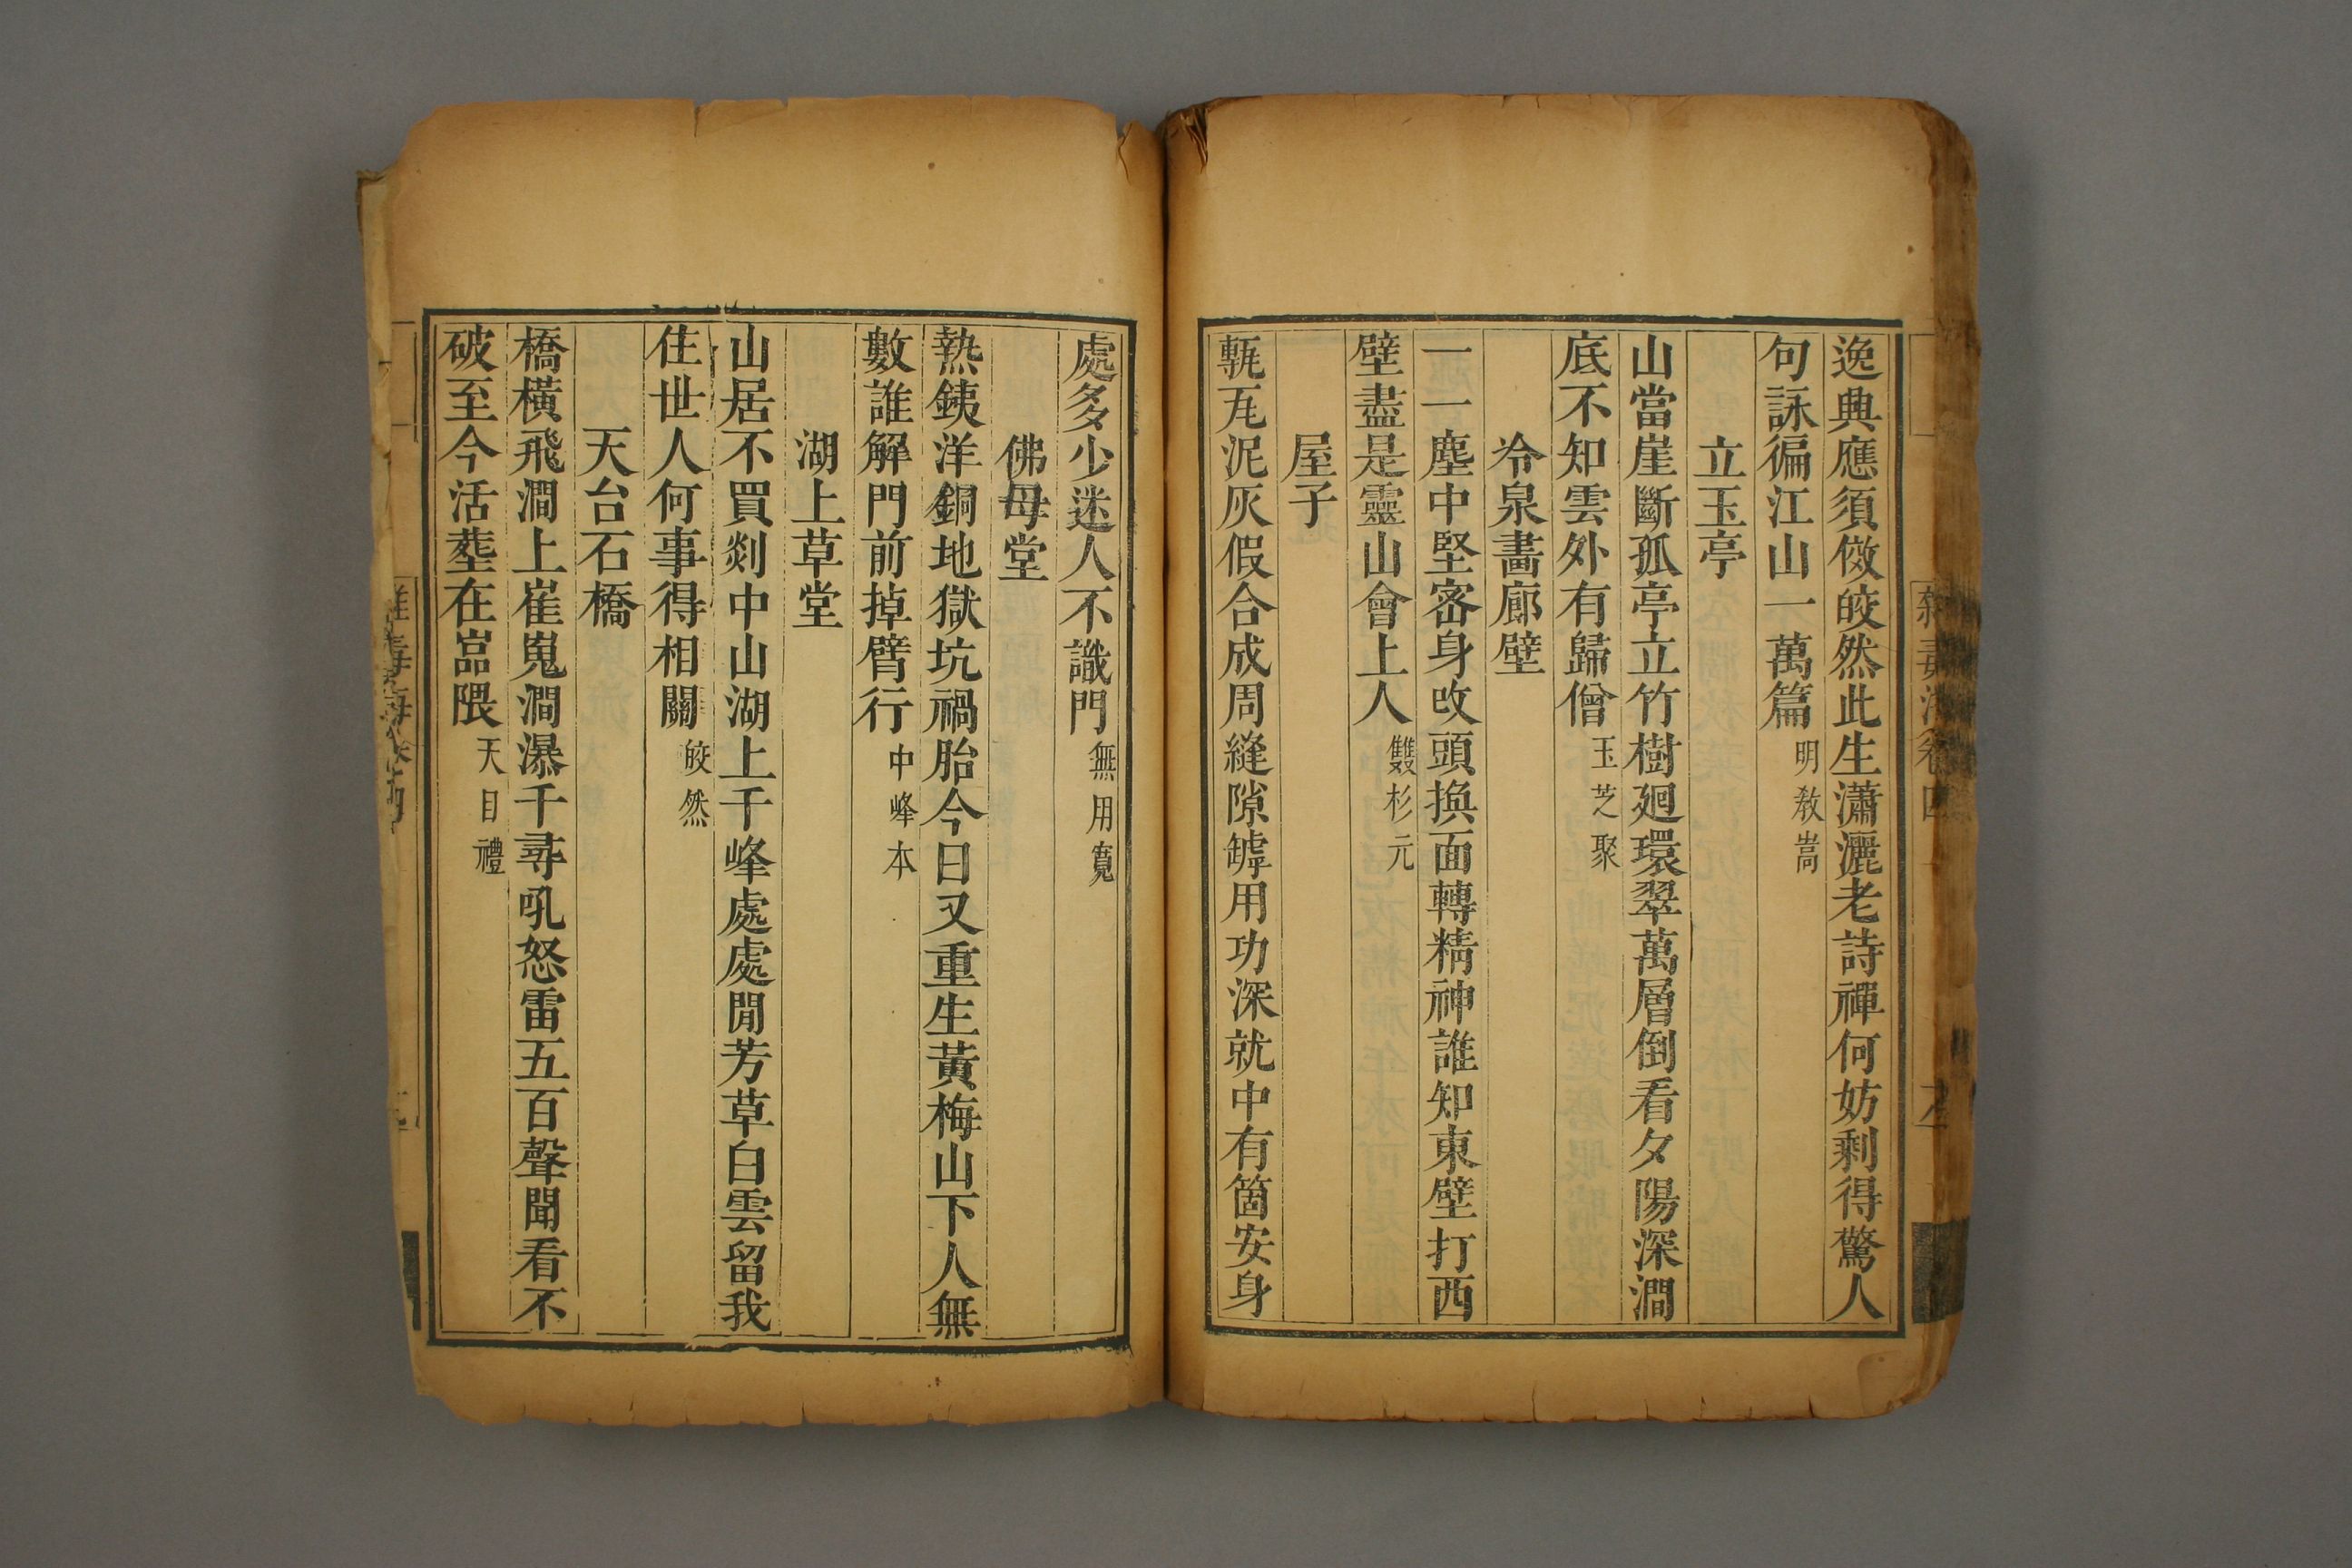 逸典應須傚皎然此生瀟灑老詩禪何妨剩得驚人
句詠徧江山一萬篇明教嵩
立玉亭
山當崖斷孤亭立竹樹廻環翠萬層倒看夕陽深澗
底不知雲外有歸僧玉芝聚
冷泉畵廊壁
一一塵中堅宻身攺頭換面轉精神誰知東壁打西
壁盡是靈山會上人雙杉元
屋子
甎瓦泥灰假合成周縫隙罅用功深就中有箇安身
處多少迷人不識門無用寬
佛母堂
熱鐵洋銅地獄坑禍胎今日又重生黃梅山下人無
數誰解門前掉臂行中峰本
湖上草堂
山居不買剡中山湖上千峰處處閒芳草白雲留我
住世人何事得相關皎然
天台石橋
橋橫飛澗上崔嵬澗瀑千尋吼怒雷五百聲聞看不
破至今活塟在嵓隈天目禮